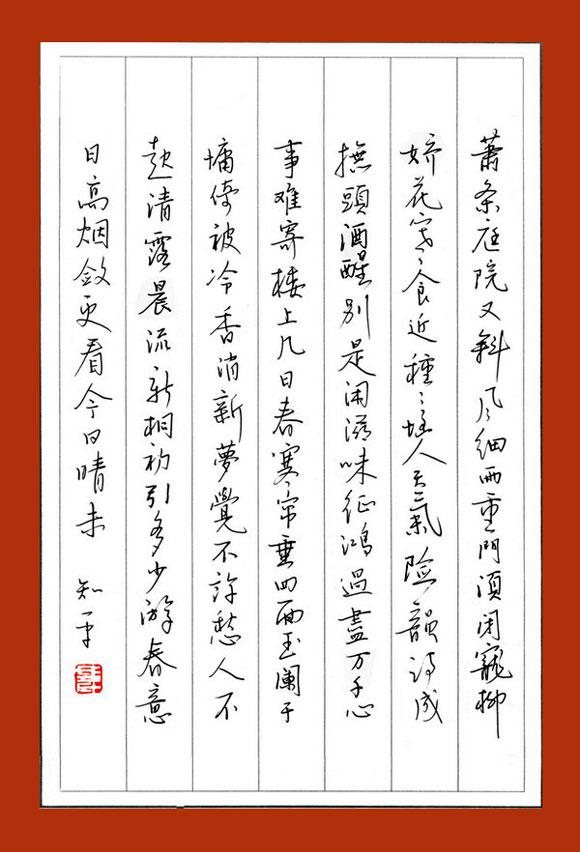 蕭条庭院又斜风细雨重門須闭寵柳
娇花寒食近種〻惱人天氣险韻诗成
撫頭酒醒别是闲滋味征鴻過盡万千心
事难寄楼上几日春寒帘垂四面玉阑干
慵倚被冷香消新夢覺不许愁人不
起清露晨流新桐初引多少游春意
日高烟斂更看今日晴未 知平